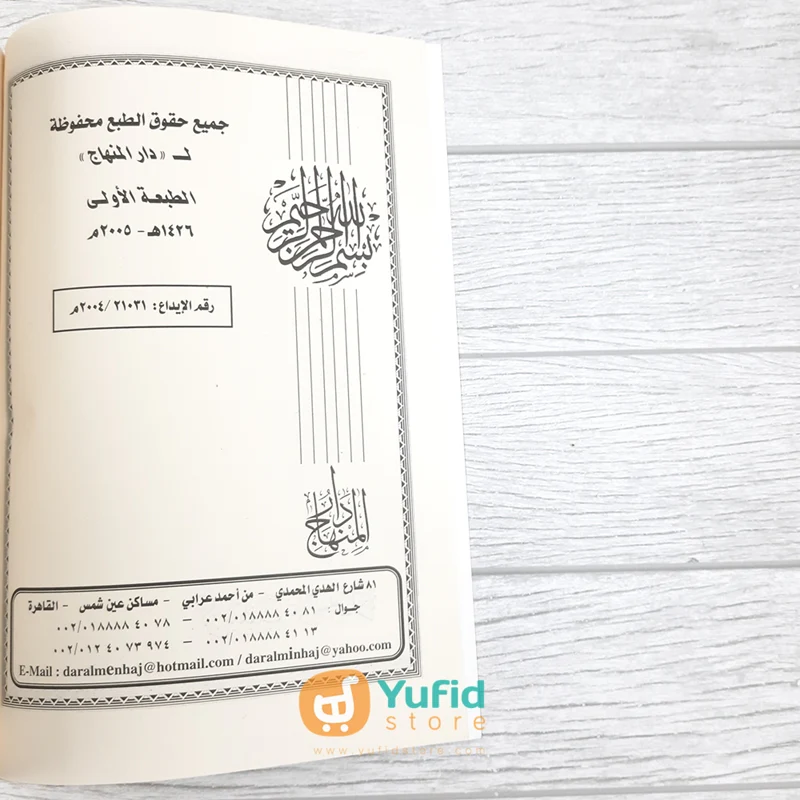 جميع حقوق الطبع محفوظة
لـ «دار المنهاج»
الطبعة الأولى
١٤٢٦هـ - ٢٠٠٥م
بسم الله الرحمن الرحيم
رقم الإيداع: ٢١٠٣١/ ٢٠٠٤م
دار المنهاج
٨١ شارع الهدي المحمدي - من أحمد عرابي - مساكن عين شمس - القاهرة
جوال: ٠٠٢/٠١٨٨٨٨ ٤٠ ٨١ - ٠٠٢/٠١٨٨٨٨ ٤٠ ٧٨
٠٠٢/٠١٨٨٨٨ ٤١ ١٣ - ٠٠٢/٠١٢ ٤٠ ٧٣ ٩٧٤
E-Mail : daralmenhaj@hotmail.com / daralminhaj@yahoo.com
Yufid
store
www.yufidstore.com